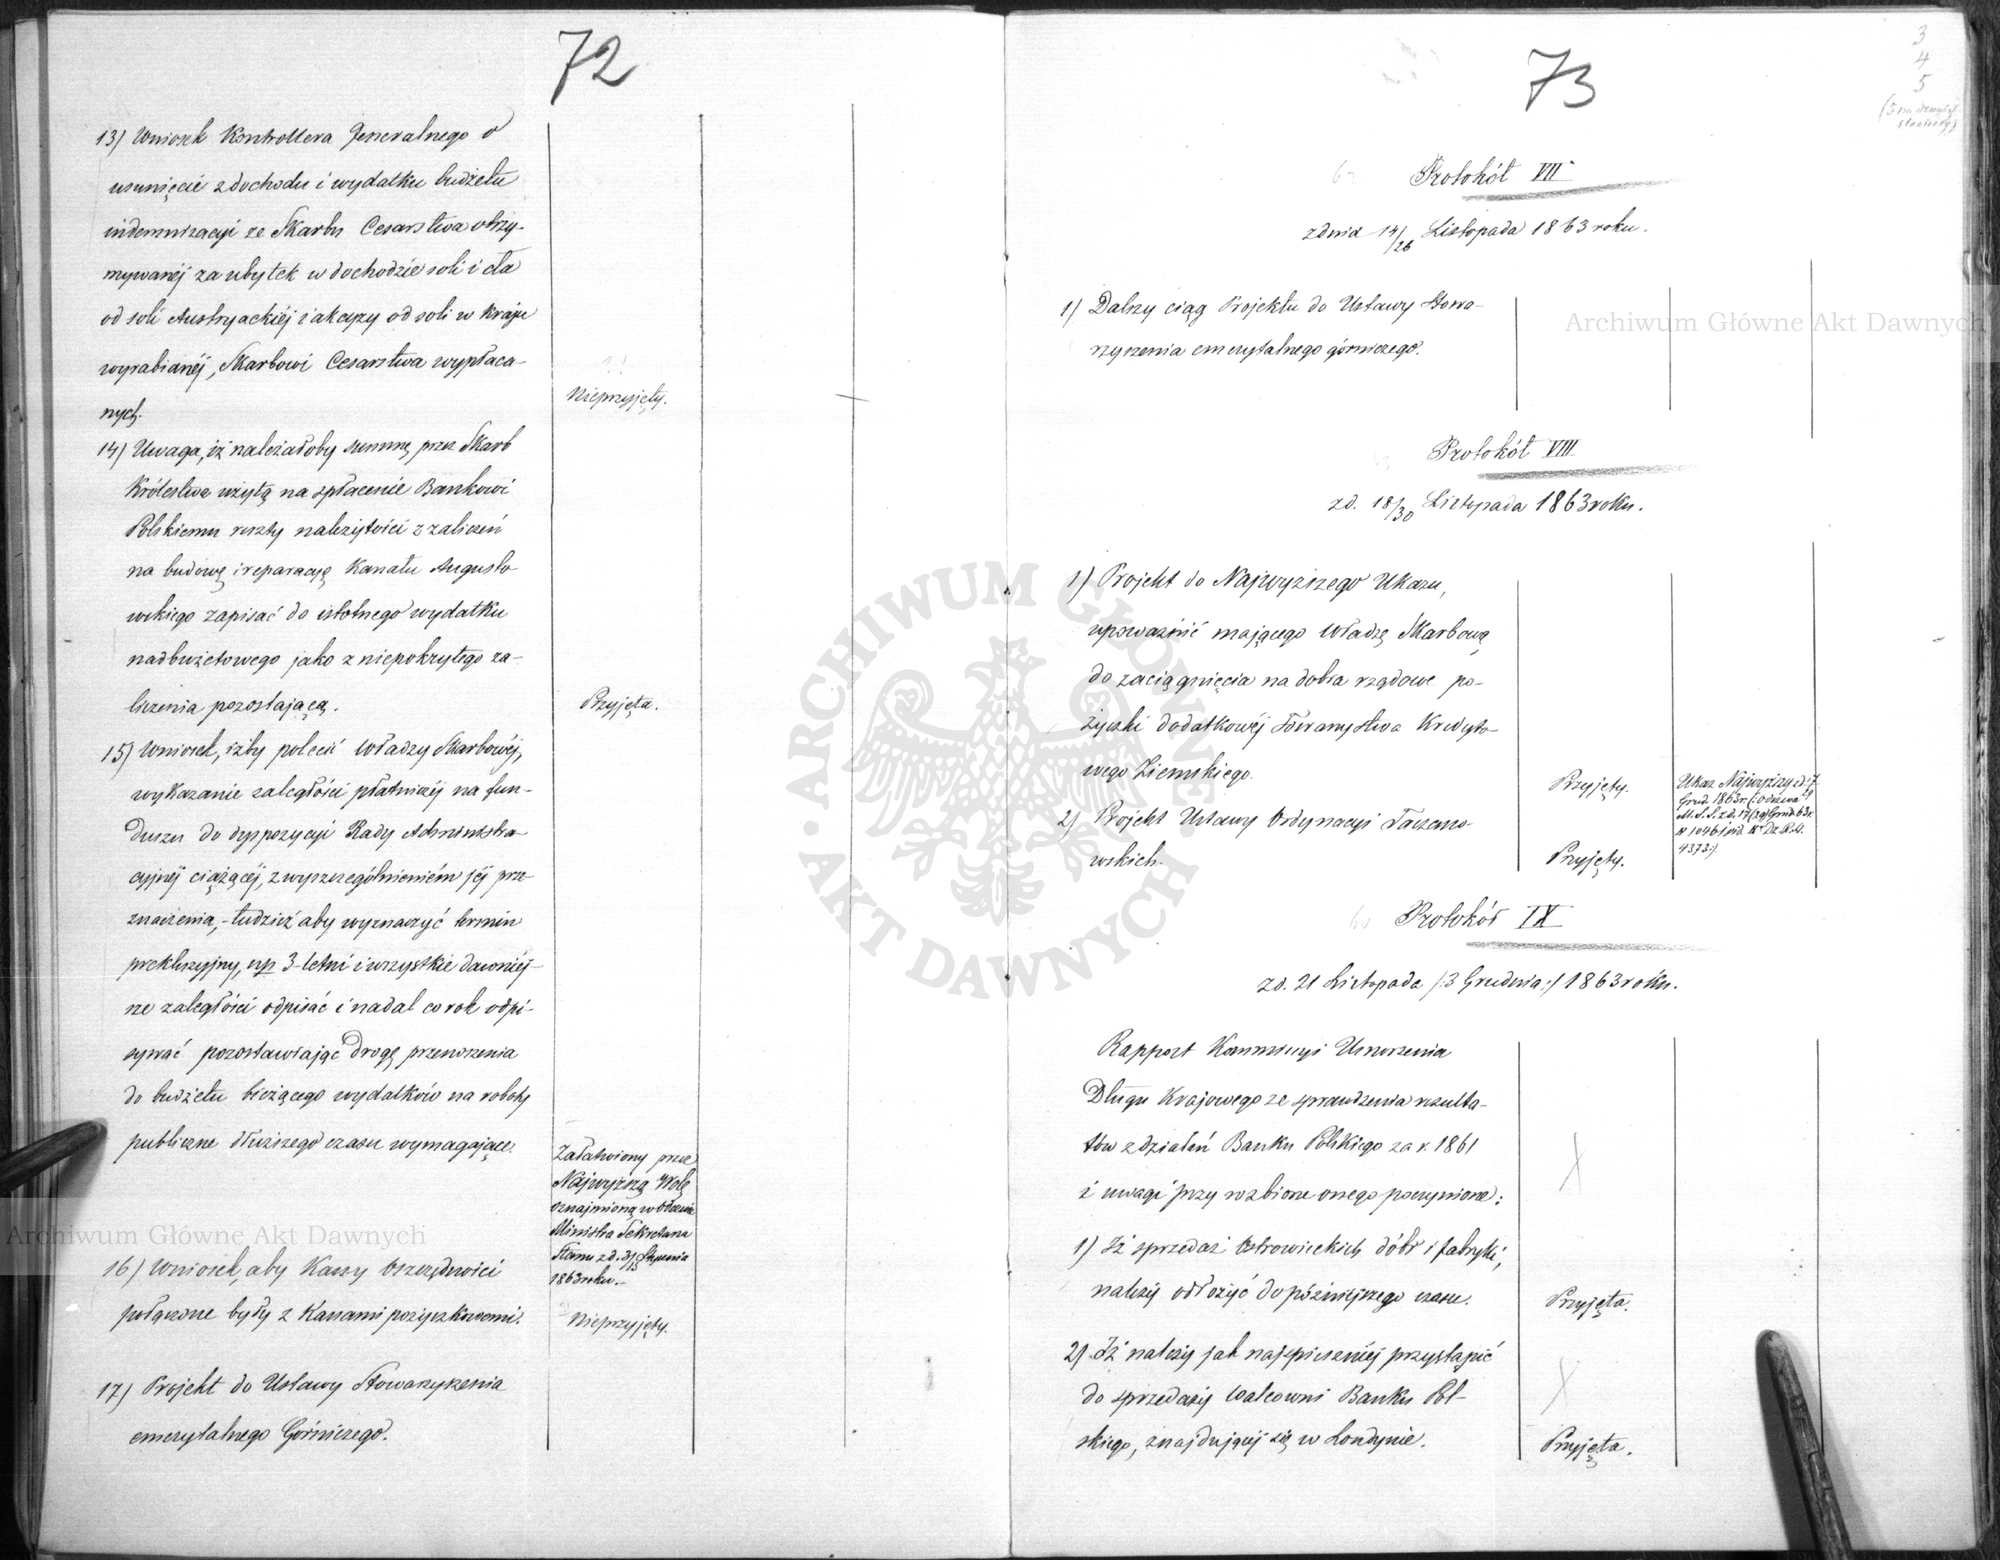 72
13) Wniosek Kontrollera Jeneralnego o
usunięcie z dochodu i wydatku budżetu
indemnizacyi ze Skarbu Cesarstwa otrzy-
mywanéj za ubytek w dochodzie soli i cła
od soli Austryackiéj i akcyzy od soli w kraju
wyrabianéj, Skarbowi Cesarstwa wypłaca-
nych.
Nieprzyjęty.
14) Uwaga, iż należałoby summę przez Skarb
Królestwa użytą na spłacenie Bankowi
Polskiemu reszty należytości z zaliczeń
na budowę i reparacyę Kanału Augusto-
wskiego zapisać do istotnego wydatku
nadbużetowego jako z niepokrytego za-
liczenia pozostającą.
Przyjęta.
15) Wniosek, iżby polecić Władzy Skarbowéj,
wykazanie zaległości płatniczéj na fun-
duszu do dyspozycyi Rady Administra-
cyjnéj ciążącéj, z wyszczególnieniem jéj prze-
znaczenia, - tudzież aby wyznaczyć termin
prekluzyjny, np 3-letni i wszystkie dawniéj-
sze zaległości odpisać i nadal co rok odpi-
sywać pozostawiając drogę przenoszenia
do budżetu bieżącego wydatków na roboty
publiczne dłuższego czasu wymagające.
Załatwiony przez
Najwyższą Wolę
oznajmioną w odezwie
Ministra Sekretarza
Stanu z d. 3/15 Stycznia
1863 roku.
16) Wniosek, aby Kassy Oszczędności
połączone były z Kassami pożyczkowemi.
Nieprzyjęty.
17) Projekt do Ustawy Stowarzyszenia
emerytalnego Górniczego.
73
3
4
5
Protokół VII
z dnia 14/26 Listopada 1863 roku.
1) Dalszy ciąg Projektu do Ustawy Stowa-
rzyszenia emerytalnego górniczego.
Protokół VIII
z d. 18/30 Listopada 1863 roku.
1) Projekt do Najwyższego Ukazu,
upoważnić mającego Władzę Skarbową
do zaciągnięcia na dobra rządowe po-
życzki dodatkowéj Towarzystwa Kredyto-
wego Ziemskiego.
Przyjęty.
Ukaz Najwyższy z d. 17/29
Grud. 1863 r. (: Odezwa
M. S. S. z d. 17(29) Grud. 63 r.
№ 1046
4373:)
2) Projekt Ustawy Ordynacyi Taczano-
wskich.
Przyjęty.
Protokół IX
z d. 21 Listopada /:3 Grudnia:/ 1863 roku.
Rapport Kommissyi Umorzenia
Długu Krajowego ze sprawdzenia rezulta-
tów z działań Banku Polskiego za r. 1861
i uwagi przy rozbiorze onego poczynione:
1) Iż sprzedaż Ostrowieckich dóbr i fabryki,
należy odłożyć do późniejszego czasu.
Przyjęta.
2) Iż należy jak najspieszniéj przystąpić
do sprzedaży walcowni Banku Pol-
skiego, znajdującéj się w Londynie.
Przyjęta.
ARCHIWUM GŁÓWNE AKT DAWNYCH
Archiwum Główne Akt Dawnych
Archiwum Główne Akt Dawnych